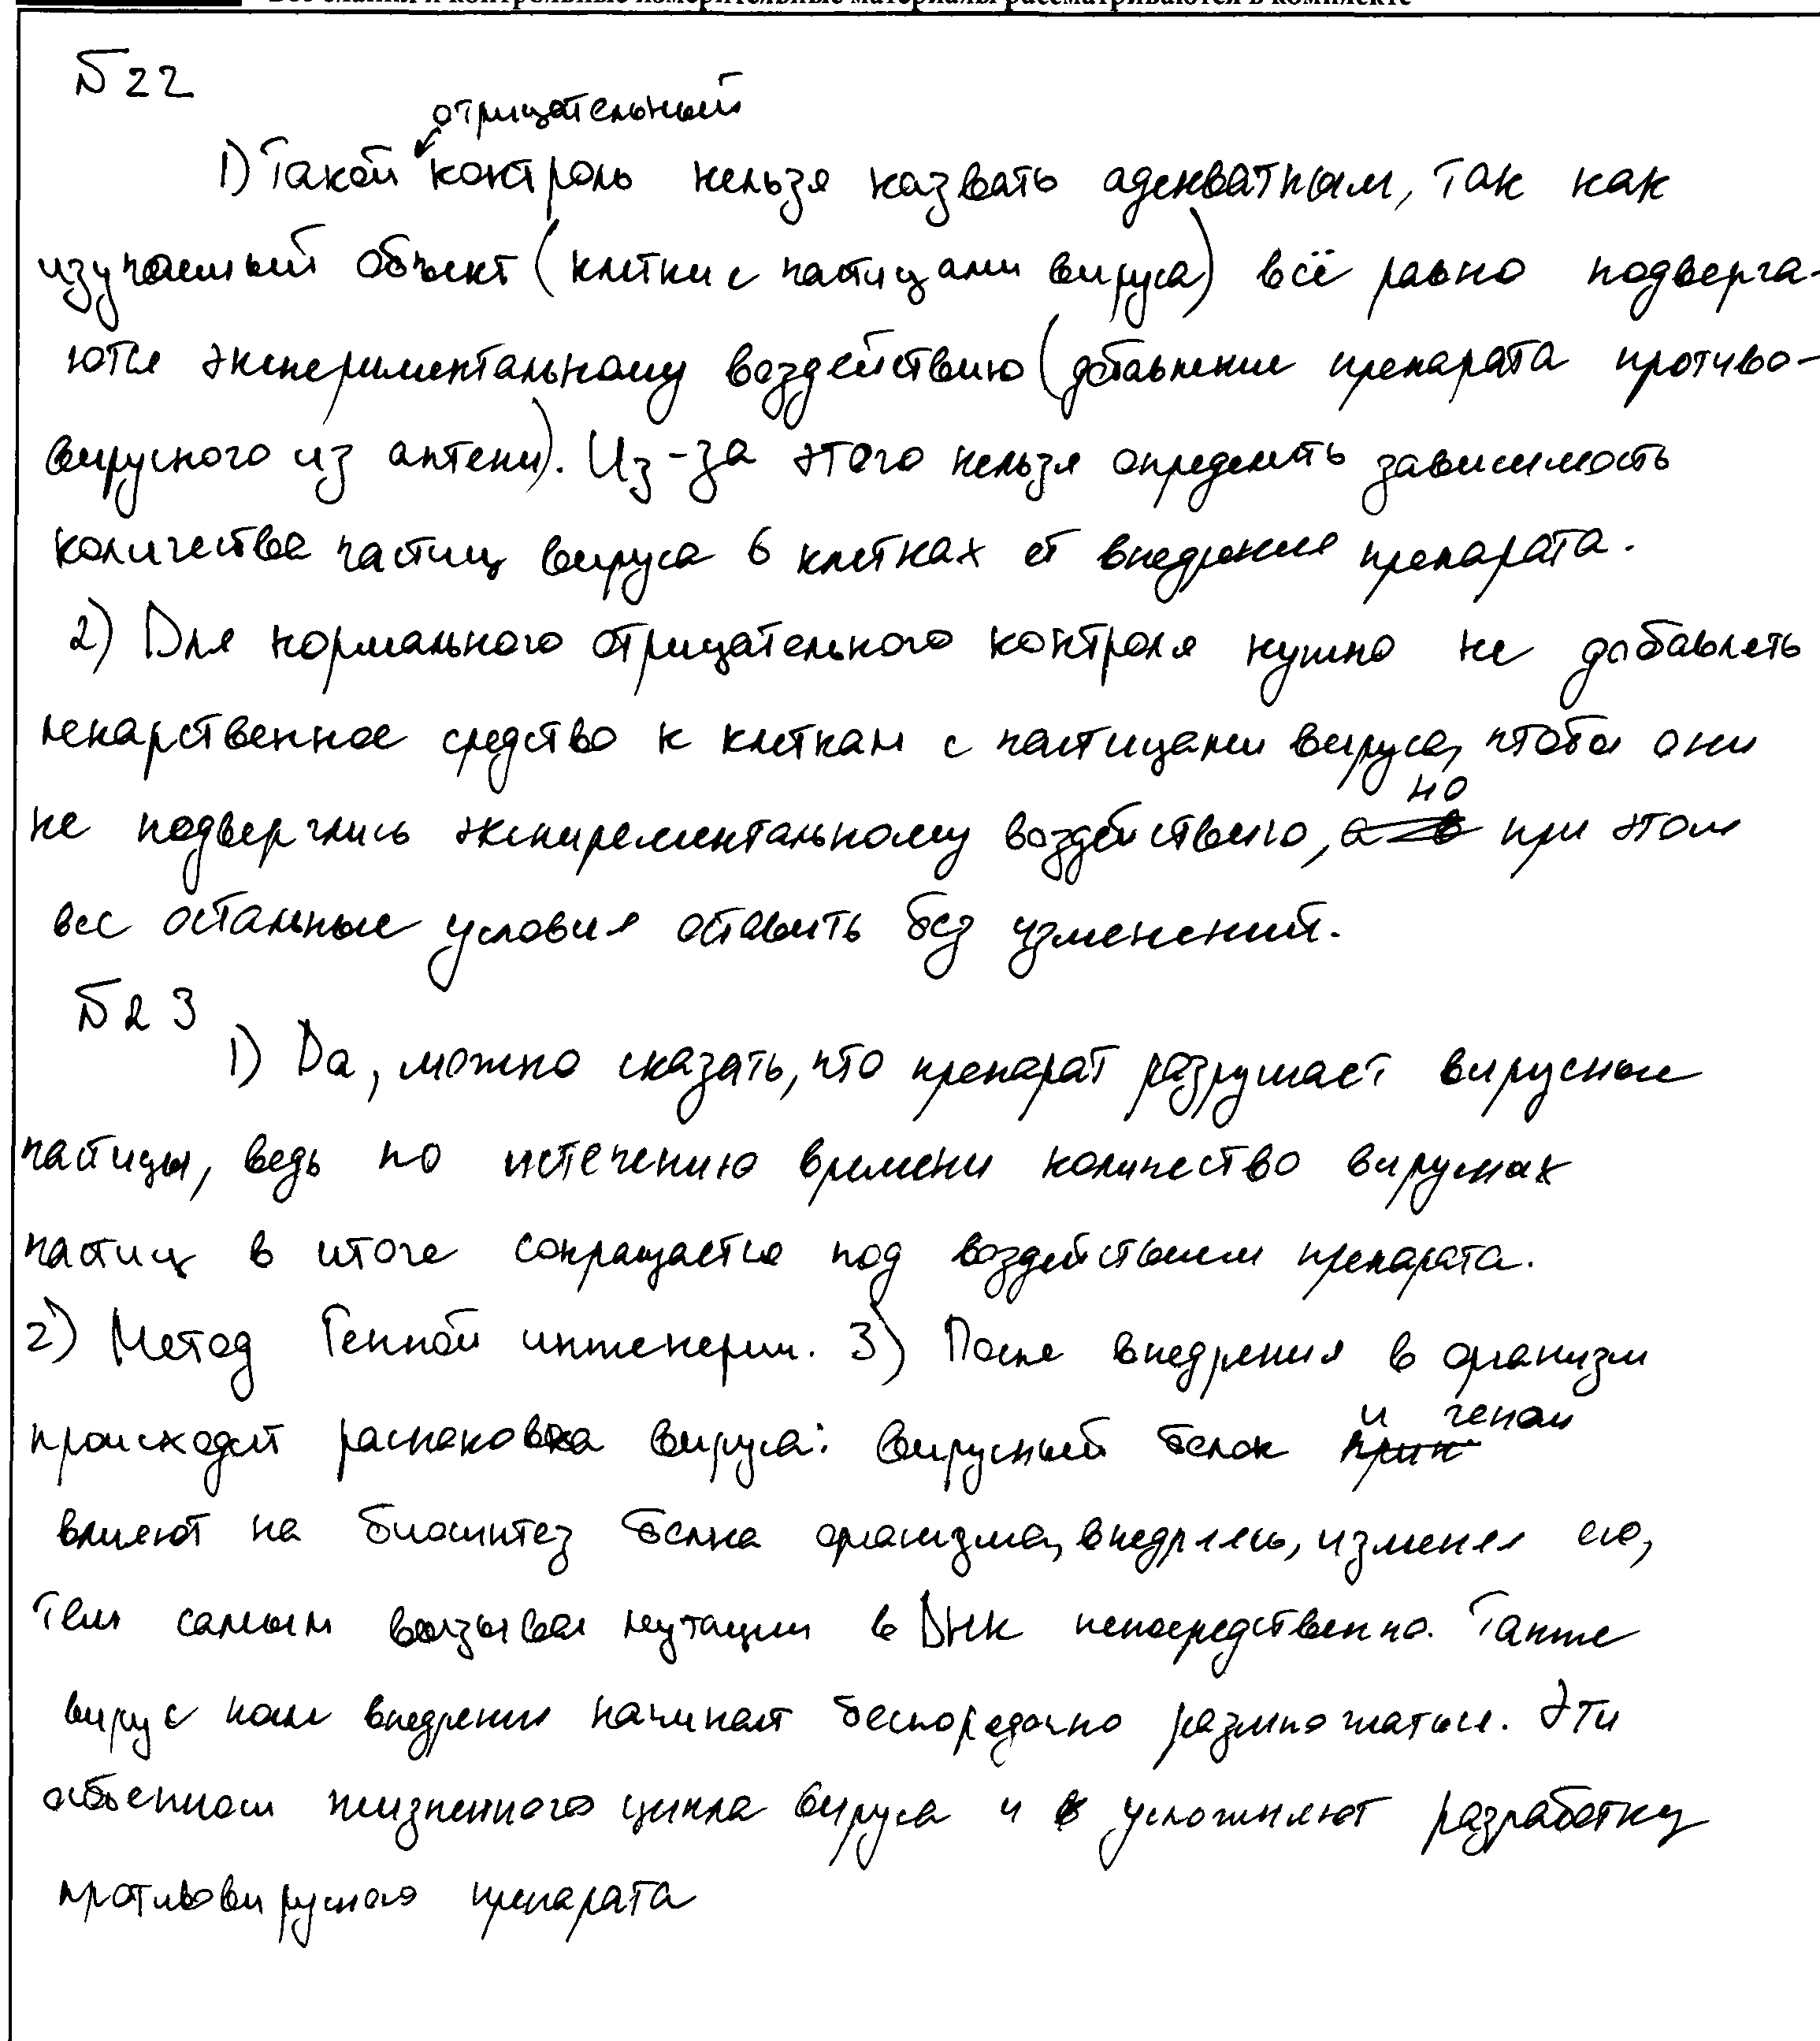 Все бланки и контрольные измерительные материалы рассматриваются в комплекте
№22
отрицательный
1) Такой контроль нельзя назвать адекватным, так как
изучаемый объект (клетки с частицами вируса) всё равно подверга-
ются экспериментальному воздействию (добавление препарата противо-
вирусного из аптеки). Из-за этого нельзя определить зависимость
количества частиц вируса в клетках от внедрения препарата.
2) Для нормального отрицательного контроля нужно не добавлять
лекарственное средство к клеткам с частицами вируса, чтобы они
не подверглись экспирементальному воздействию, но при этом
все остальные условия оставить без изменений.
№23
1) Да, можно сказать, что препарат разрушает вирусные
частицы, ведь по истечению времени количество вирусных
частиц в итоге сокращается под воздействием препарата.
2) Метод Генной инженерии. 3) После внедрения в организм
происходит распаковка вируса: вирусный белок и геном
влияют на биосинтез белка организма, внедряясь, изменяя его,
тем самым вызывая мутации в ДНК непосредственно. Также
вирус после внедрения начинает беспорядочно размножаться. Эти
особенности жизненного цикла вируса и усложняют разработку
противовирусного препарата